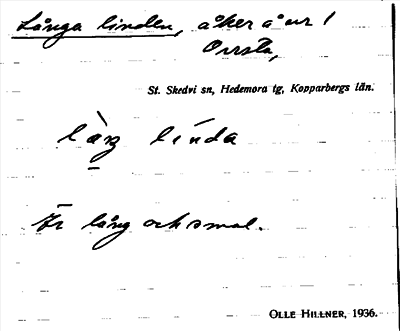 Långa linden, åker å nr 1
Orrsta,
St. Skedvi sn, Hedemora tg, Kopparbergs län.
làŋ línda
Är lång och smal.
OLLE HILLNER, 1936.